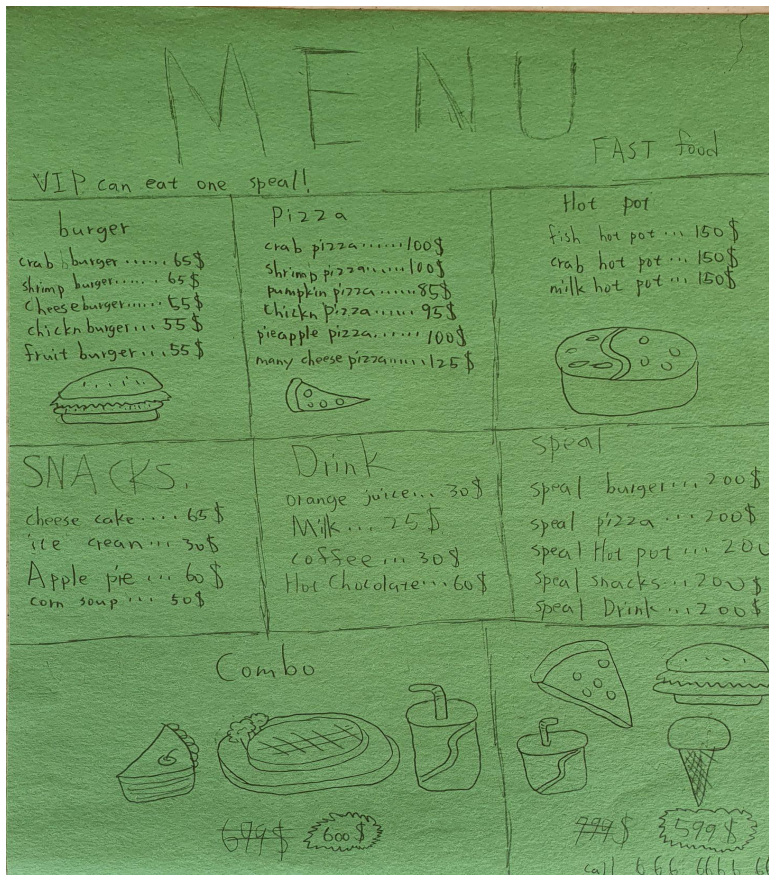 MENU
FAST food
VIP can eat one speal!
burger
crab burger...... 65$
shrimp burger...... 65$
cheeseburger...... 55$
chickn burger... 55$
fruit burger... 55$
Pizza
crab pizza......100$
shrimp pizza......100$
pumpkin pizza......85$
chickn pizza......95$
pieapple pizza......100$
many cheese pizza......125$
Hot pot
fish hot pot... 150$
crab hot pot... 150$
milk hot pot... 150$
SNACKS.
cheese cake.... 65$
ice crean... 30$
Apple pie... 60$
corn soup... 50$
Drink
orange juice... 30$
Milk... 25$
coffee... 30$
Hot Chocolate... 60$
speal
speal burger... 200$
speal pizza... 200$
speal Hot pot... 200
speal snacks... 200$
speal Drink... 200$
Combo
699$ 600$
999$ 599$
call 666 6666 66